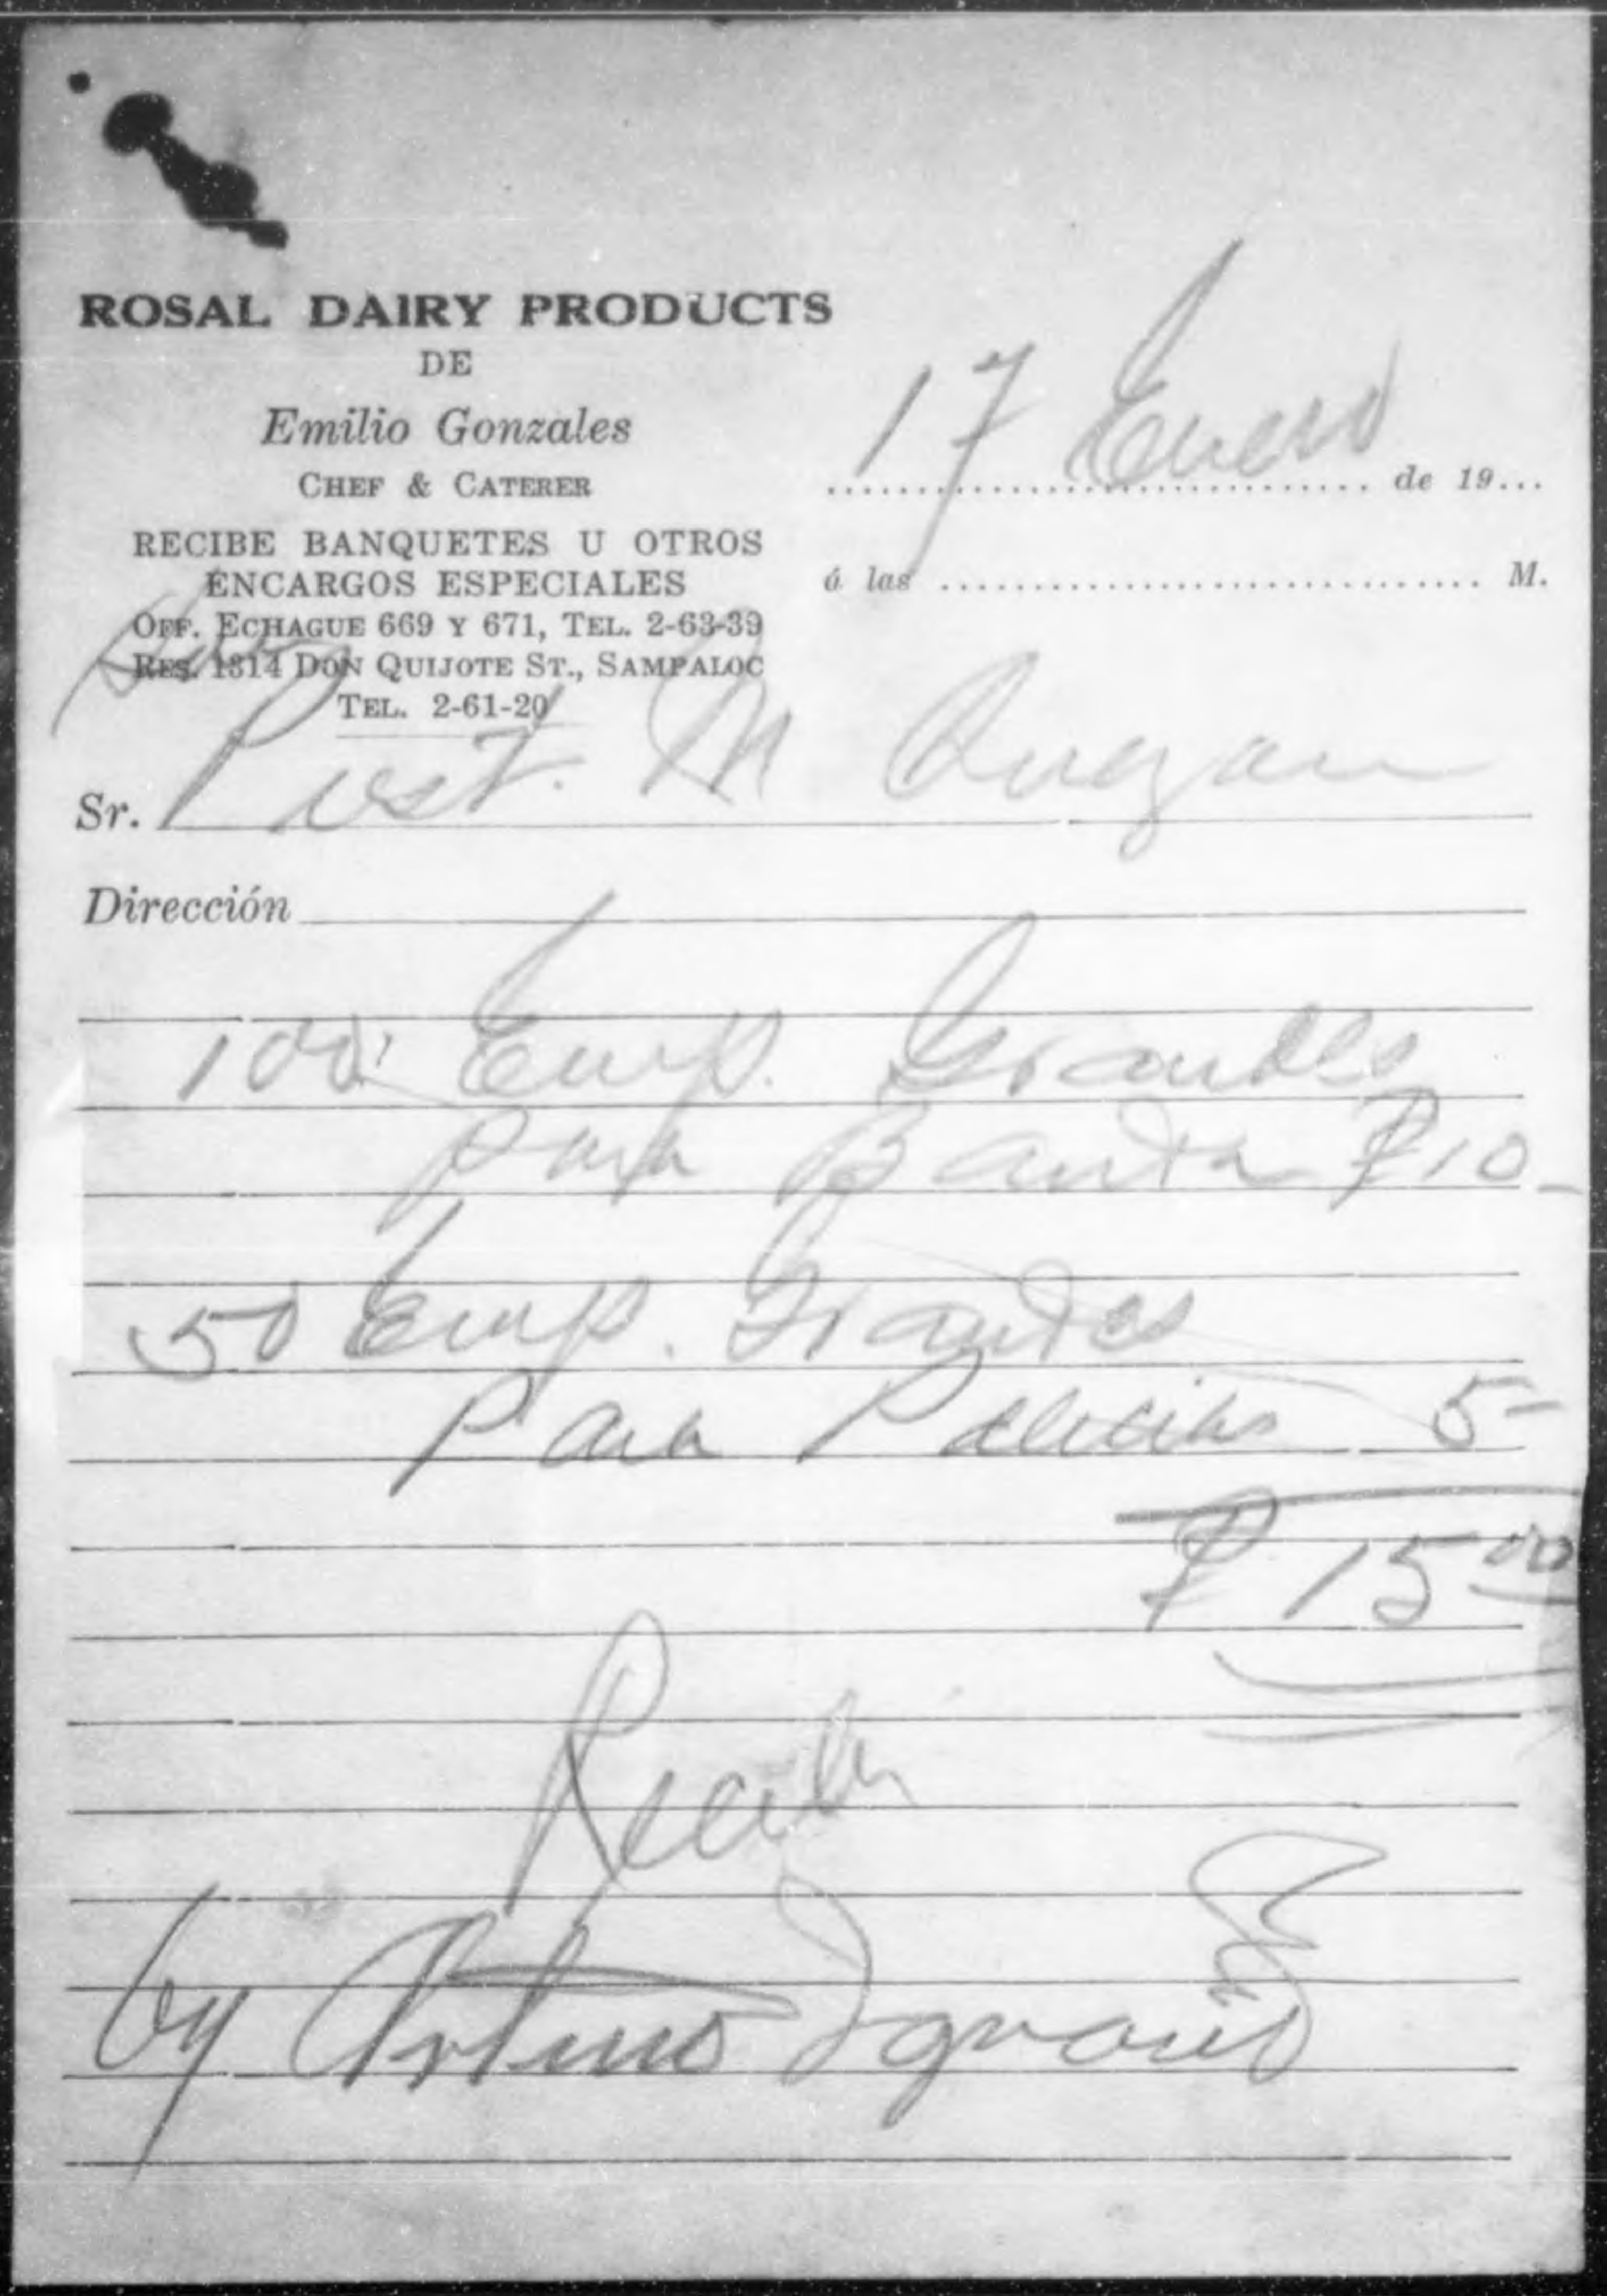 ROSAL DAIRY PRODUCTS
DE
Emilio Gonzales
CHEF & CATERER
RECIBE BANQUETES U OTROS
ENCARGOS ESPECIALES
OFF. ECHAGUE 669 Y 671, TEL. 2-63-39
RES. 1314 DON QUIJOTE ST., SAMPALOC
TEL. 2-61-20
17 Enero de 19...
á las ... M.
Sr. Pest. M Quezon
Dirección
100 Emp. Grandes
para Banda ₱10_
50 Emp. Grandes
Para Policias 5-
₱ 15 00
Recibi
by Arturo Ignacio